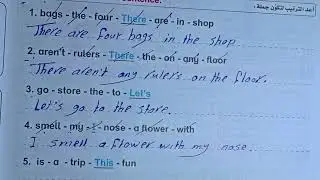 أعد الترتيب لتكون جملة :
sentence.
1. bags - the - four - There - are - in - shop
There are four bags in the shop
2. aren't - rulers - There - the - on - any - floor
There aren't any rulers on the floor.
3. go - store - the - to - Let's
Let's go to the store.
4. smell - my - I - nose - a flower - with
I smell a flower with my nose.
5. is - a - trip - This - fun